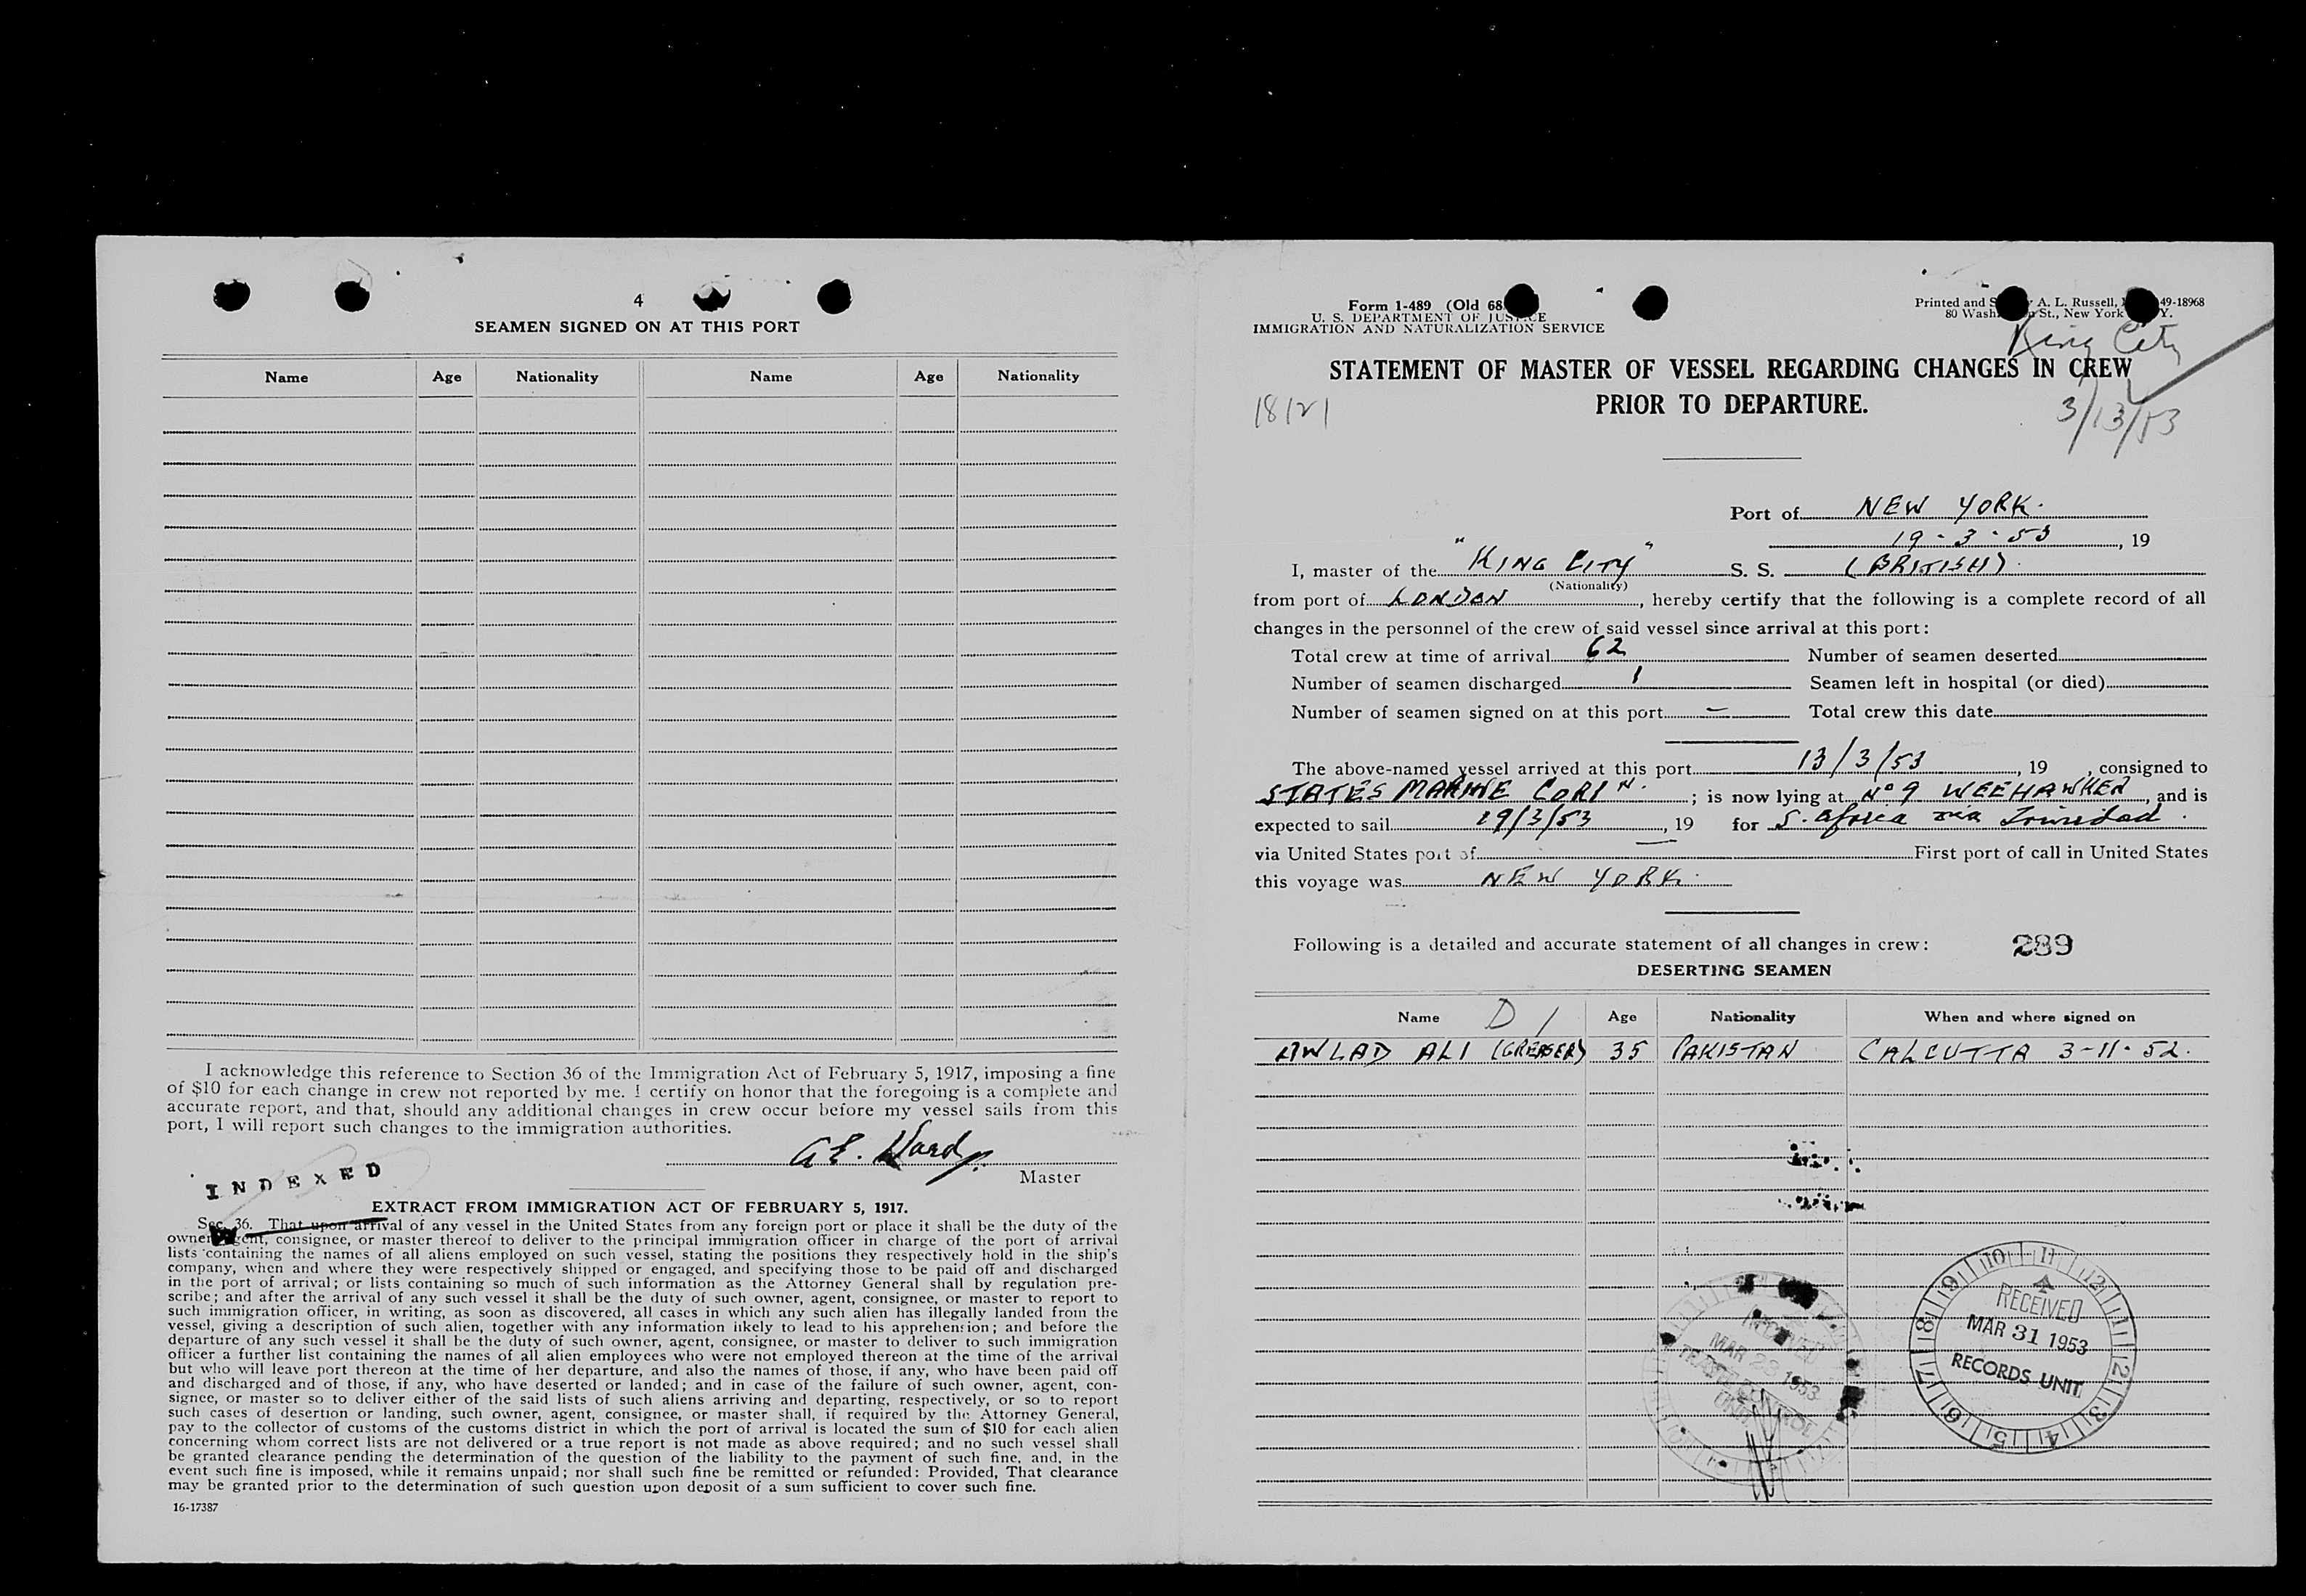 4
SEAMEN SIGNED ON AT THIS PORT
Name Age Nationality Name Age Nationality
I acknowledge this reference to Section 36 of the Immigration Act of February 5, 1917, imposing a fine
of $10 for each change in crew not reported by me. I certify on honor that the foregoing is a complete and
accurate report, and that, should any additional changes in crew occur before my vessel sails from this
port, I will report such changes to the immigration authorities.
Master
INDEXED
EXTRACT FROM IMMIGRATION ACT OF FEBRUARY 5, 1917.
Sec. 36. That upon arrival of any vessel in the United States from any foreign port or place it shall be the duty of the
owner, agent, consignee, or master thereof to deliver to the principal immigration officer in charge of the port of arrival
lists containing the names of all aliens employed on such vessel, stating the positions they respectively hold in the ship's
company, when and where they were respectively shipped or engaged, and specifying those to be paid off and discharged
in the port of arrival; or lists containing so much of such information as the Attorney General shall by regulation pre-
scribe; and after the arrival of any such vessel it shall be the duty of such owner, agent, consignee, or master to report to
such immigration officer, in writing, as soon as discovered, all cases in which any such alien has illegally landed from the
vessel, giving a description of such alien, together with any information likely to lead to his apprehension; and before the
departure of any such vessel it shall be the duty of such owner, agent, consignee, or master to deliver to such immigration
officer a further list containing the names of all alien employees who were not employed thereon at the time of the arrival
but who will leave port thereon at the time of her departure, and also the names of those, if any, who have been paid off
and discharged and of those, if any, who have deserted or landed; and in case of the failure of such owner, agent, con-
signee, or master so to deliver either of the said lists of such aliens arriving and departing, respectively, or so to report
such cases of desertion or landing, such owner, agent, consignee, or master shall, if required by the Attorney General,
pay to the collector of customs of the customs district in which the port of arrival is located the sum of $10 for each alien
concerning whom correct lists are not delivered or a true report is not made as above required; and no such vessel shall
be granted clearance pending the determination of the question of the liability to the payment of such fine, and, in the
event such fine is imposed, while it remains unpaid; nor shall such fine be remitted or refunded: Provided, That clearance
may be granted prior to the determination of such question upon deposit of a sum sufficient to cover such fine.
16-17387
Form 1-489 (Old 68
U. S. DEPARTMENT OF JUSTICE
IMMIGRATION AND NATURALIZATION SERVICE
Printed and A. L. Russell, 49-18968
80 Wash St., New York Y.
King City
STATEMENT OF MASTER OF VESSEL REGARDING CHANGES IN CREW
PRIOR TO DEPARTURE.
18121
3/13/53
Port of NEW YORK.
19-3-53, 19
I, master of the "KING CITY" S. S. (BRITISH).
(Nationality)
from port of LONDON, hereby certify that the following is a complete record of all
changes in the personnel of the crew of said vessel since arrival at this port:
Total crew at time of arrival 62 Number of seamen deserted
Number of seamen discharged 1 Seamen left in hospital (or died)
Number of seamen signed on at this port — Total crew this date
The above-named vessel arrived at this port 13/3/53, 19 , consigned to
STATES MARINE CORPN.; is now lying at No 9 WEEHAWKEN, and is
expected to sail 19/3/53, 19 for S. Africa via Trinidad.
via United States port of — First port of call in United States
this voyage was NEW YORK.
Following is a detailed and accurate statement of all changes in crew: 289
DESERTING SEAMEN
Name D 1 Age Nationality When and where signed on
AWLAD ALI (GREASER) 35 PAKISTAN CALCUTTA 3-11-52.
RECEIVED
MAR 23 1953
10 11 12 1 2 3 4 5 6 7 8 9
RECEIVED
MAR 31 1953
RECORDS UNIT